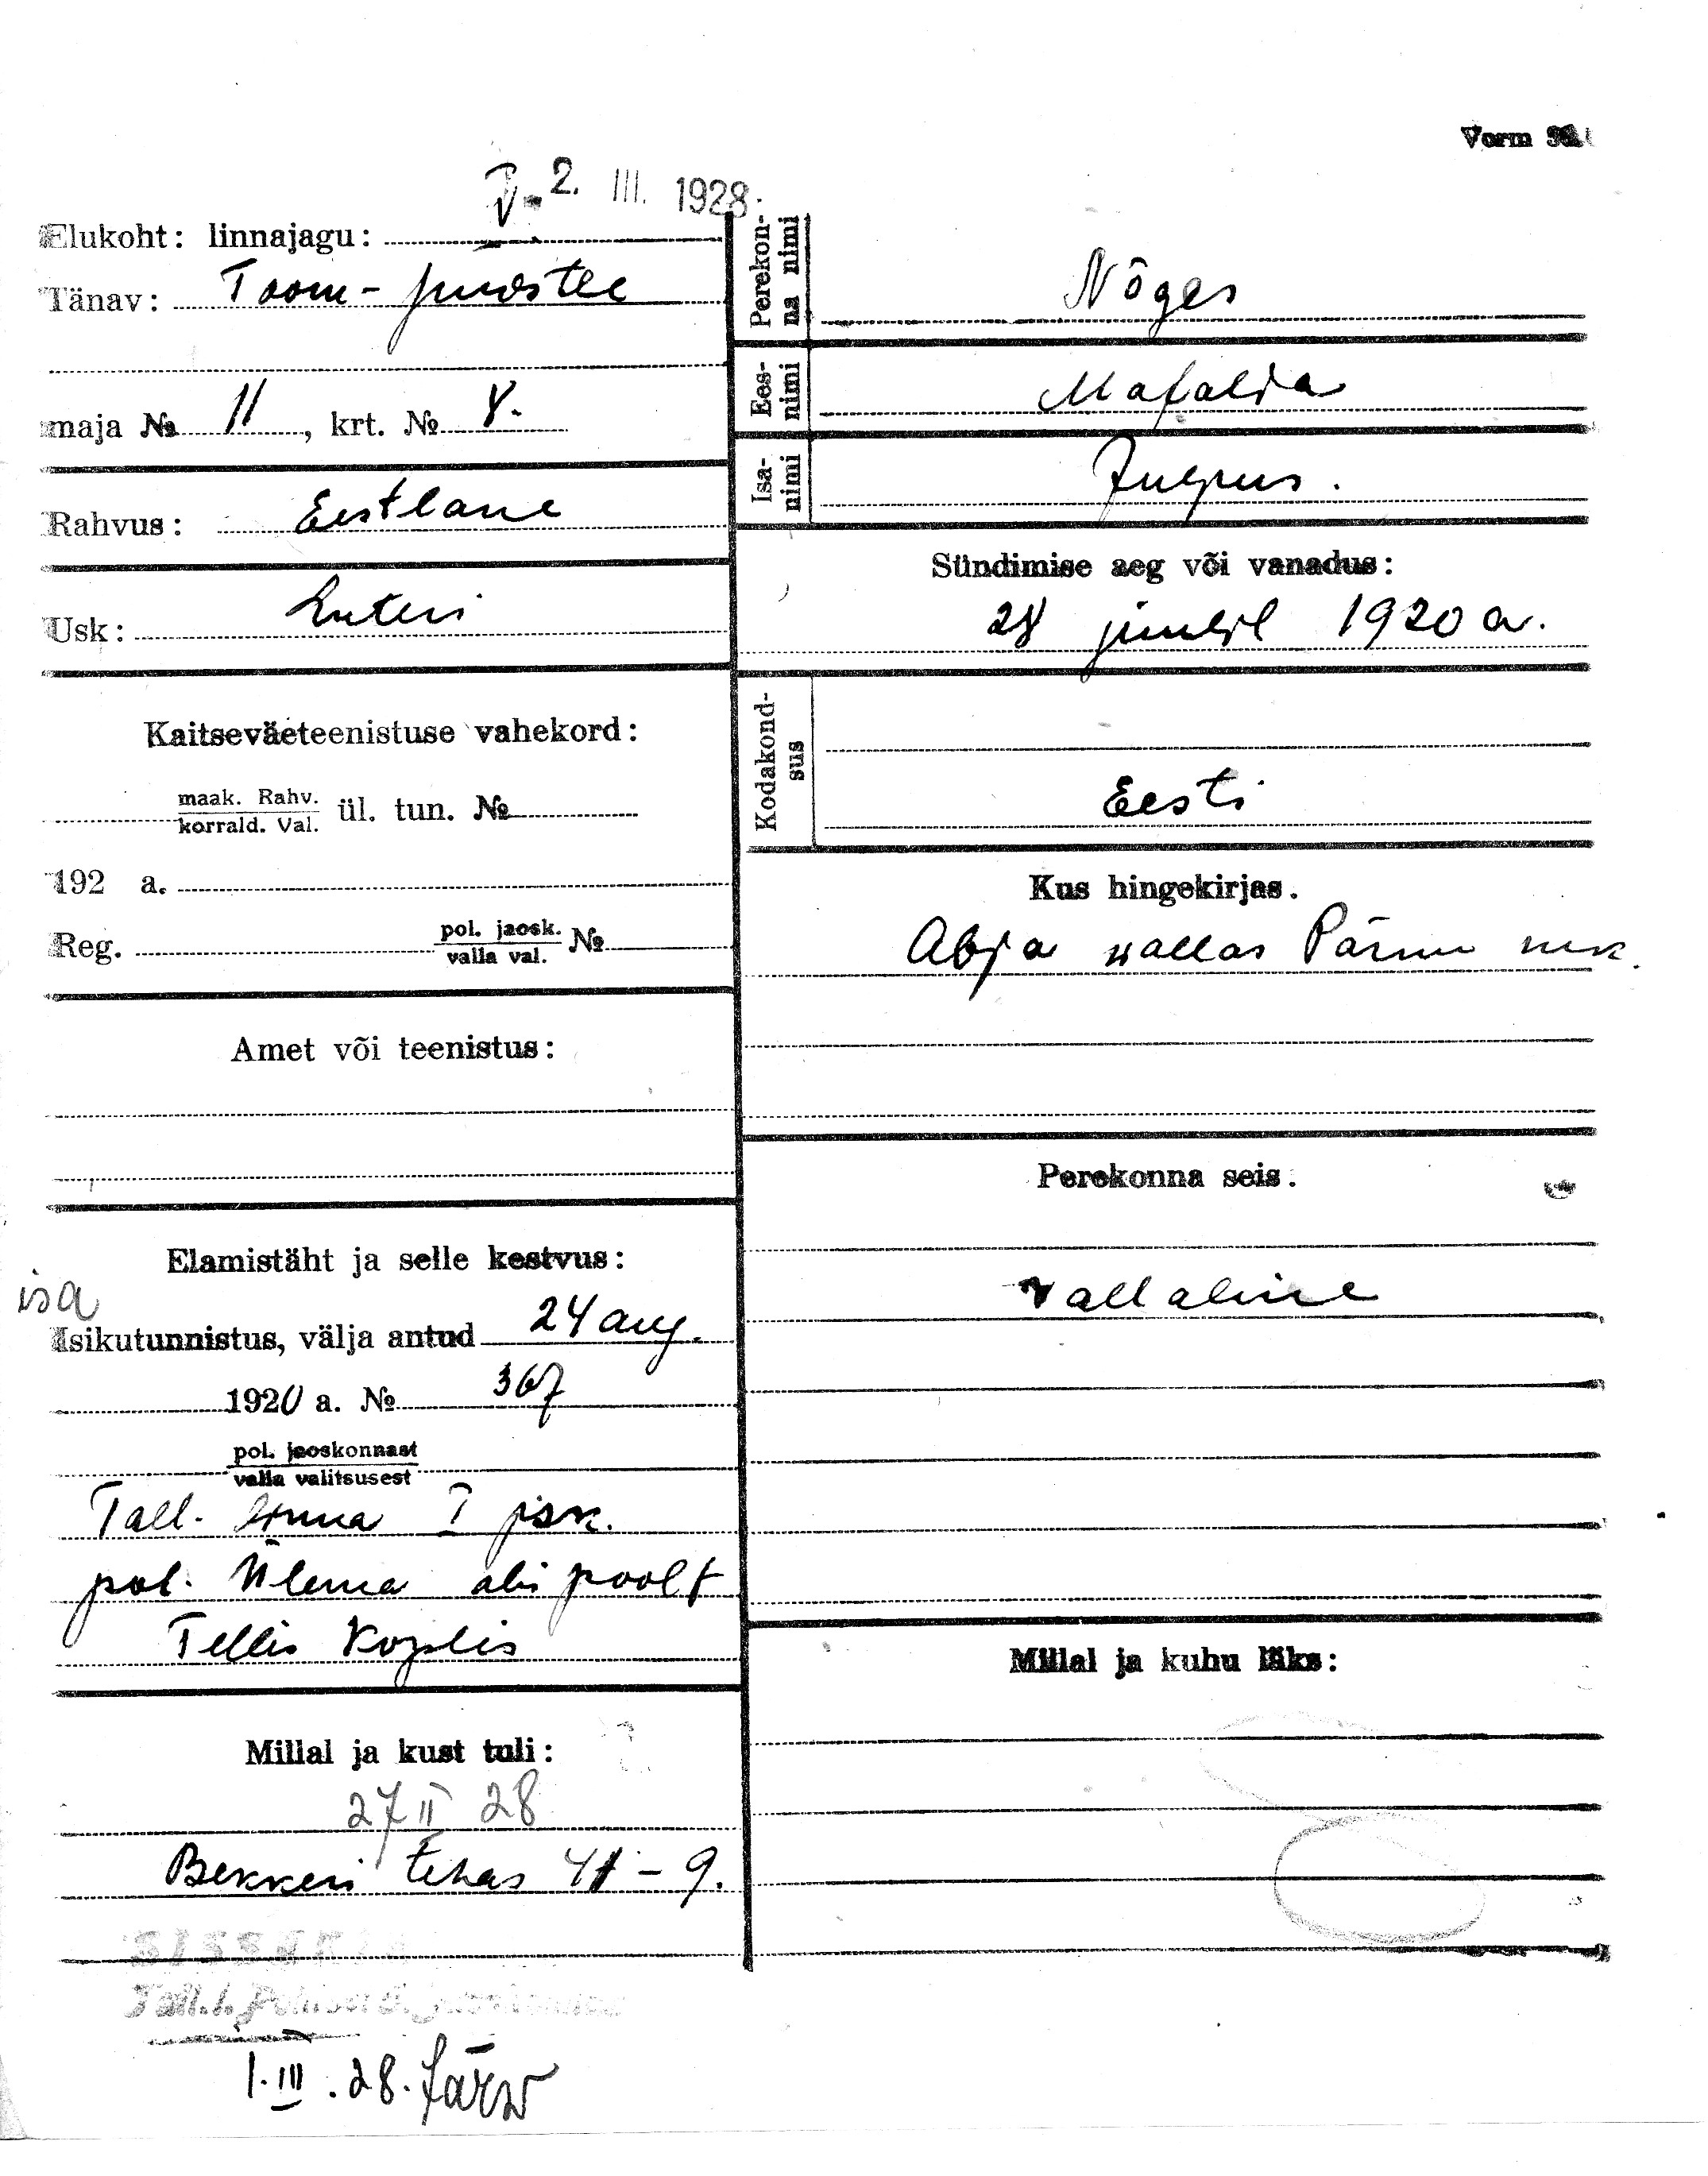 Vorm
2. III. 1928.
Elukoht: linnajagu: I
Tänav: Toom-puiestee
maja № 11, krt. № 8.
Rahvus: Eestlane
Usk: Luteri
Kaitseväeteenistuse vahekord:
maak. Rahv.
korrald. Val. ül. tun. №
192 a.
Reg. pol. jaosk.
valla val. №
Amet või teenistus:
Elamistäht ja selle kestvus:
isa
Isikutunnistus, välja antud 24 aug.
1920 a. № 367
pol. jaoskonnast
valla valitsusest
Tall. linna I jsk.
pol. Ülema abi poolt
Tellis Koplis
Millal ja kust tuli:
27 II 28
Bekkeri tehas 41-9.
1.III.28. Järw
Perekon-
na nimi
Nõges
Ees-
nimi
Mafalda
Isa-
nimi
Julius.
Sündimise aeg või vanadus:
28 juulil 1920 a.
Kodakond-
sus
Eesti
Kus hingekirjas.
Abja wallas Pärnu mk.
Perekonna seis.
vallaline
Millal ja kuhu läks: